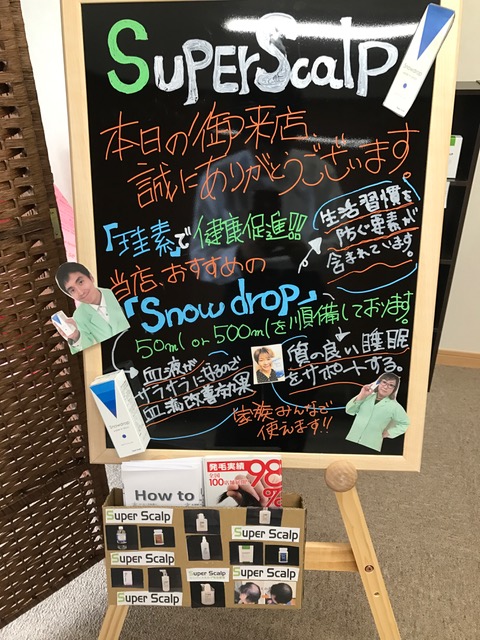 SuperScalp
本日の御来店、
誠にありがとうございます。
「珪素」で健康促進!!
生活習慣を
防ぐ要素が
含まれています。
当店、おすすめの
「Snow drop」
50ml or 500mlを順備しております。
血液が
サラサラになるので
血流改善効果
質の良い睡眠
をサポートする。
家族みんなで
使えます!!
How to
発毛実績
全国
100店舗
98%
Super Scalp
Super Scalp
Super Scalp
Super Scalp
Super Scalp
Super Scalp
Super Scalp